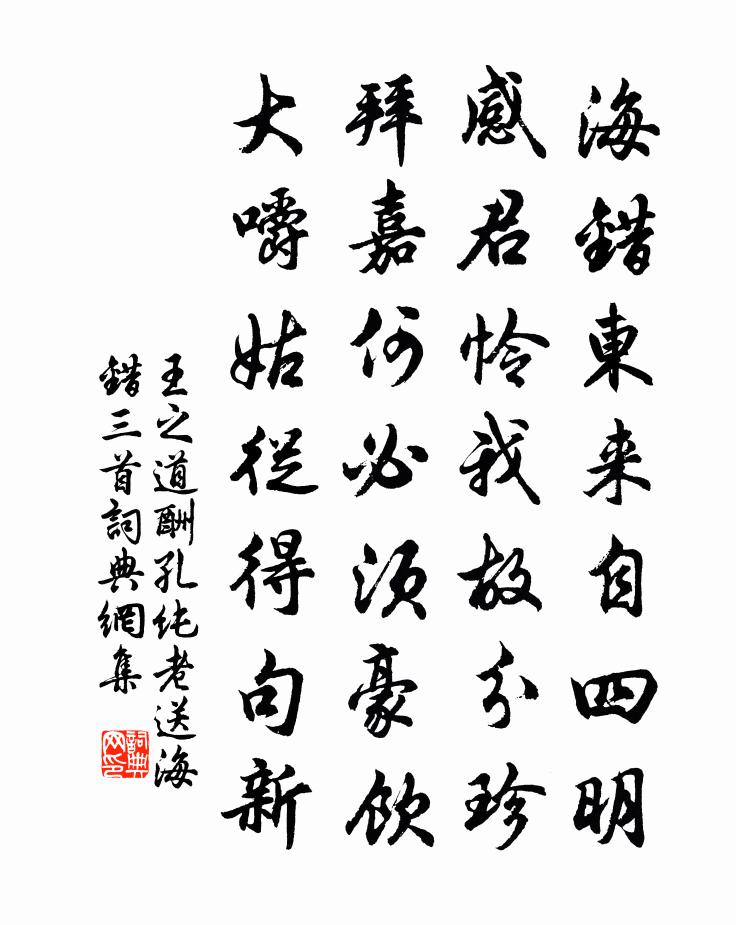 海錯東来自四明
感君怜我故分珍
拜嘉何必須豪飲
大嚼姑從得句新
王之道酬孔純老送海
錯三首詞典網集
詞典网印